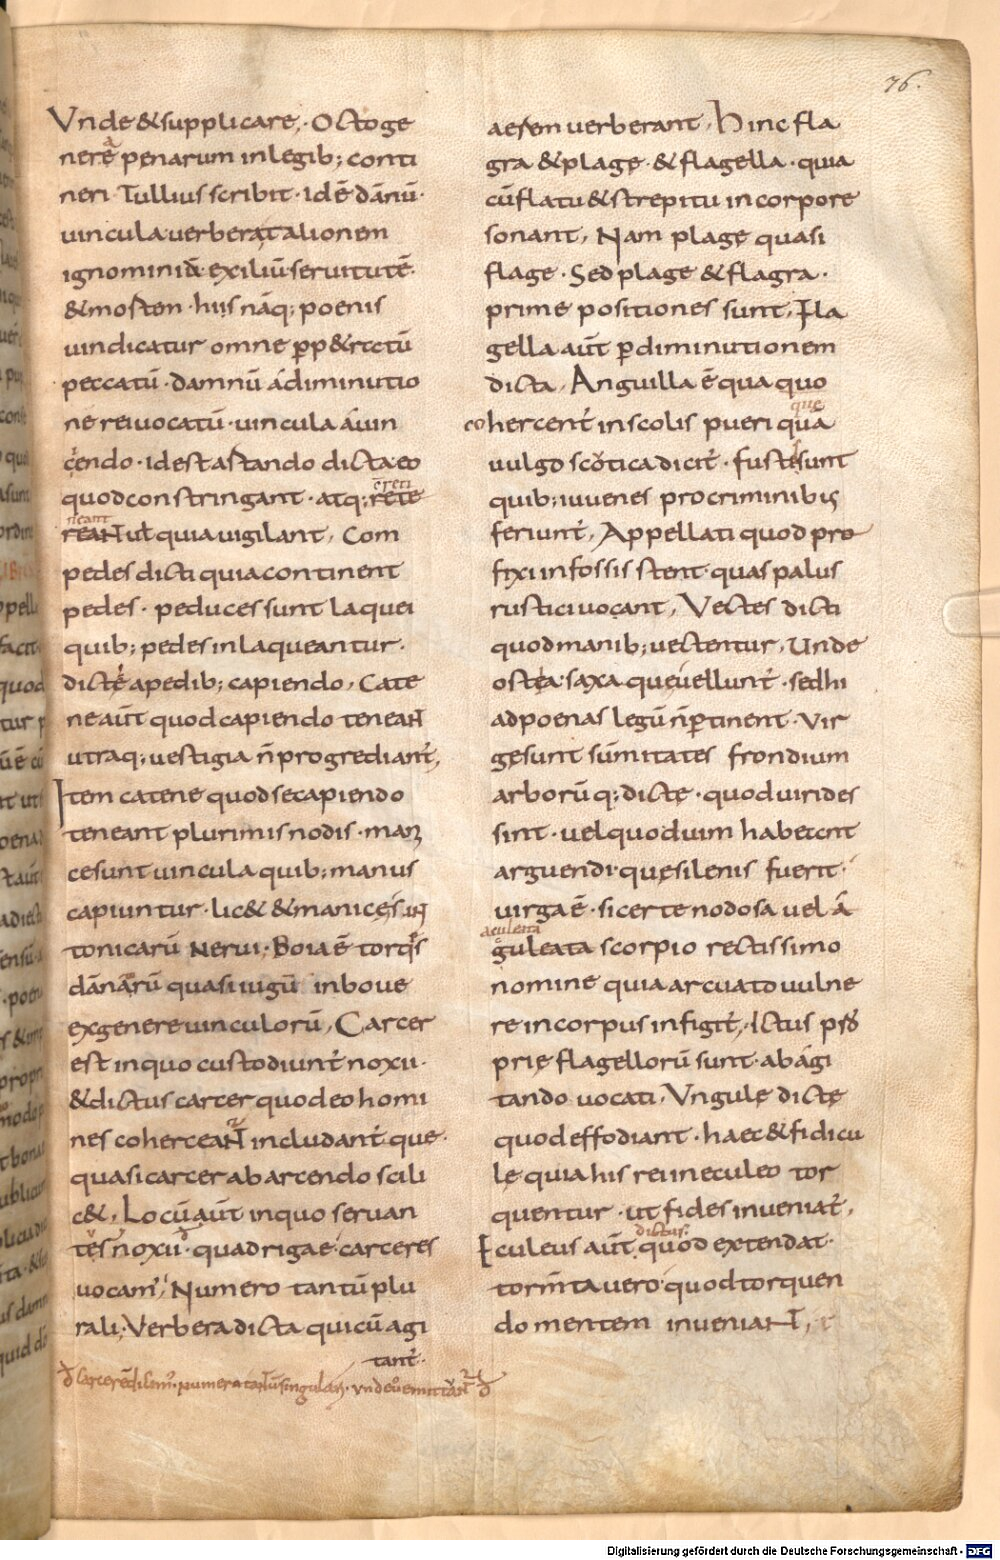 76.
Vnde &supplicare,· Octoge
nerẽ penarum inlegib; conti
neri Tullius scribit · idẽ dãnũ·
uincula uerbera talionem
ignominiã exiliũ seruitutẽ·
& mortem · hiis nãq; poenis
uindicatur omne ꝑp&rctũ
peccatũ · damnũ ádiminutio
ne rei uocatũ · uincula áuin
cendo · idest astando dicta eo
ereti
quodconstringant · atq; rete
neant
reant uł quia uigilant, Com
pedes dicti quia continent
pedes · peduces sunt laquei
quib; pedes inlaqueantur·
dicte apedib; capiendo, Cate
ne aũt quod capiendo teneant
utraq; uestigia ñ progrediant̃,
Item catene quod secapiendo
teneant plurimis nodis · mani
cesunt uincula quib; manus
capiuntur · lic& &manicęs in
tonicarũ Nerui; Boia ẽ torqs
dãnãrũ quasi iugũ inboue
exgenere uinculorũ, Carcer
est inquo custodiunt̃ noxii·
& dictus carcer quodeo homi
nes coherceant includant̃ que·
quasi carcer ab arcendo scili
c&, Locũ aũt inquo seruan
tes noxii · quadrigae carceres
uocam', Numero tantũ plu
rali; Verbera dicta quicũ agi
tant̃·
carcerẽ dicim' · numero tantũ singulari · unde
aerem uerberant, Hinc fla
gra & plage · & flagella · quia
cũ flatu & strepitu incorpore
sonant, Nam plagę quasi
flage · Sed plage & flagra·
prime positiones sunt, Fla
gella aũt ꝑdiminutionem
dicta, Anguilla ẽ qua quo
que
cohercent̃ inscolis pueri qua
uulgo scotica dicit̃ · fustes sunt
quib; iuuenes procriminibus
feriunt̃, Appellati quod pre
fixi infossis stent · quas palus
rustici uocant, Vectes dicti
quod manib; uectentur, Unde
ostea saxa que uellunt̃ · sed hi
ad poenas legũ ñ ꝑtinent · Vir
ge sunt sũmitates frondium
arborũ q; dictę · quod uirides
sint · uel quod uim habeant
arguendi · quę si lenis fuerit·
uirga ẽ · si certe nodosa uel á
aculeata
guleata scorpio rectissimo
nomine quia arcuato uulne
re incorpus infigit̃, Ictus pro
prie flagellorũ sunt · ab ági
tando uocati, Vngule dictę
quod effodiant · haec & fidicu
le quia his rei ineculeo tor
quentur · ut fides inueniat̃,
dictus
Eculeus aũt quod extendat·
torm̃ta uero quod torquen
do mentem inueniant,
Digitalisierung gefördert durch die Deutsche Forschungsgemeinschaft - DFG